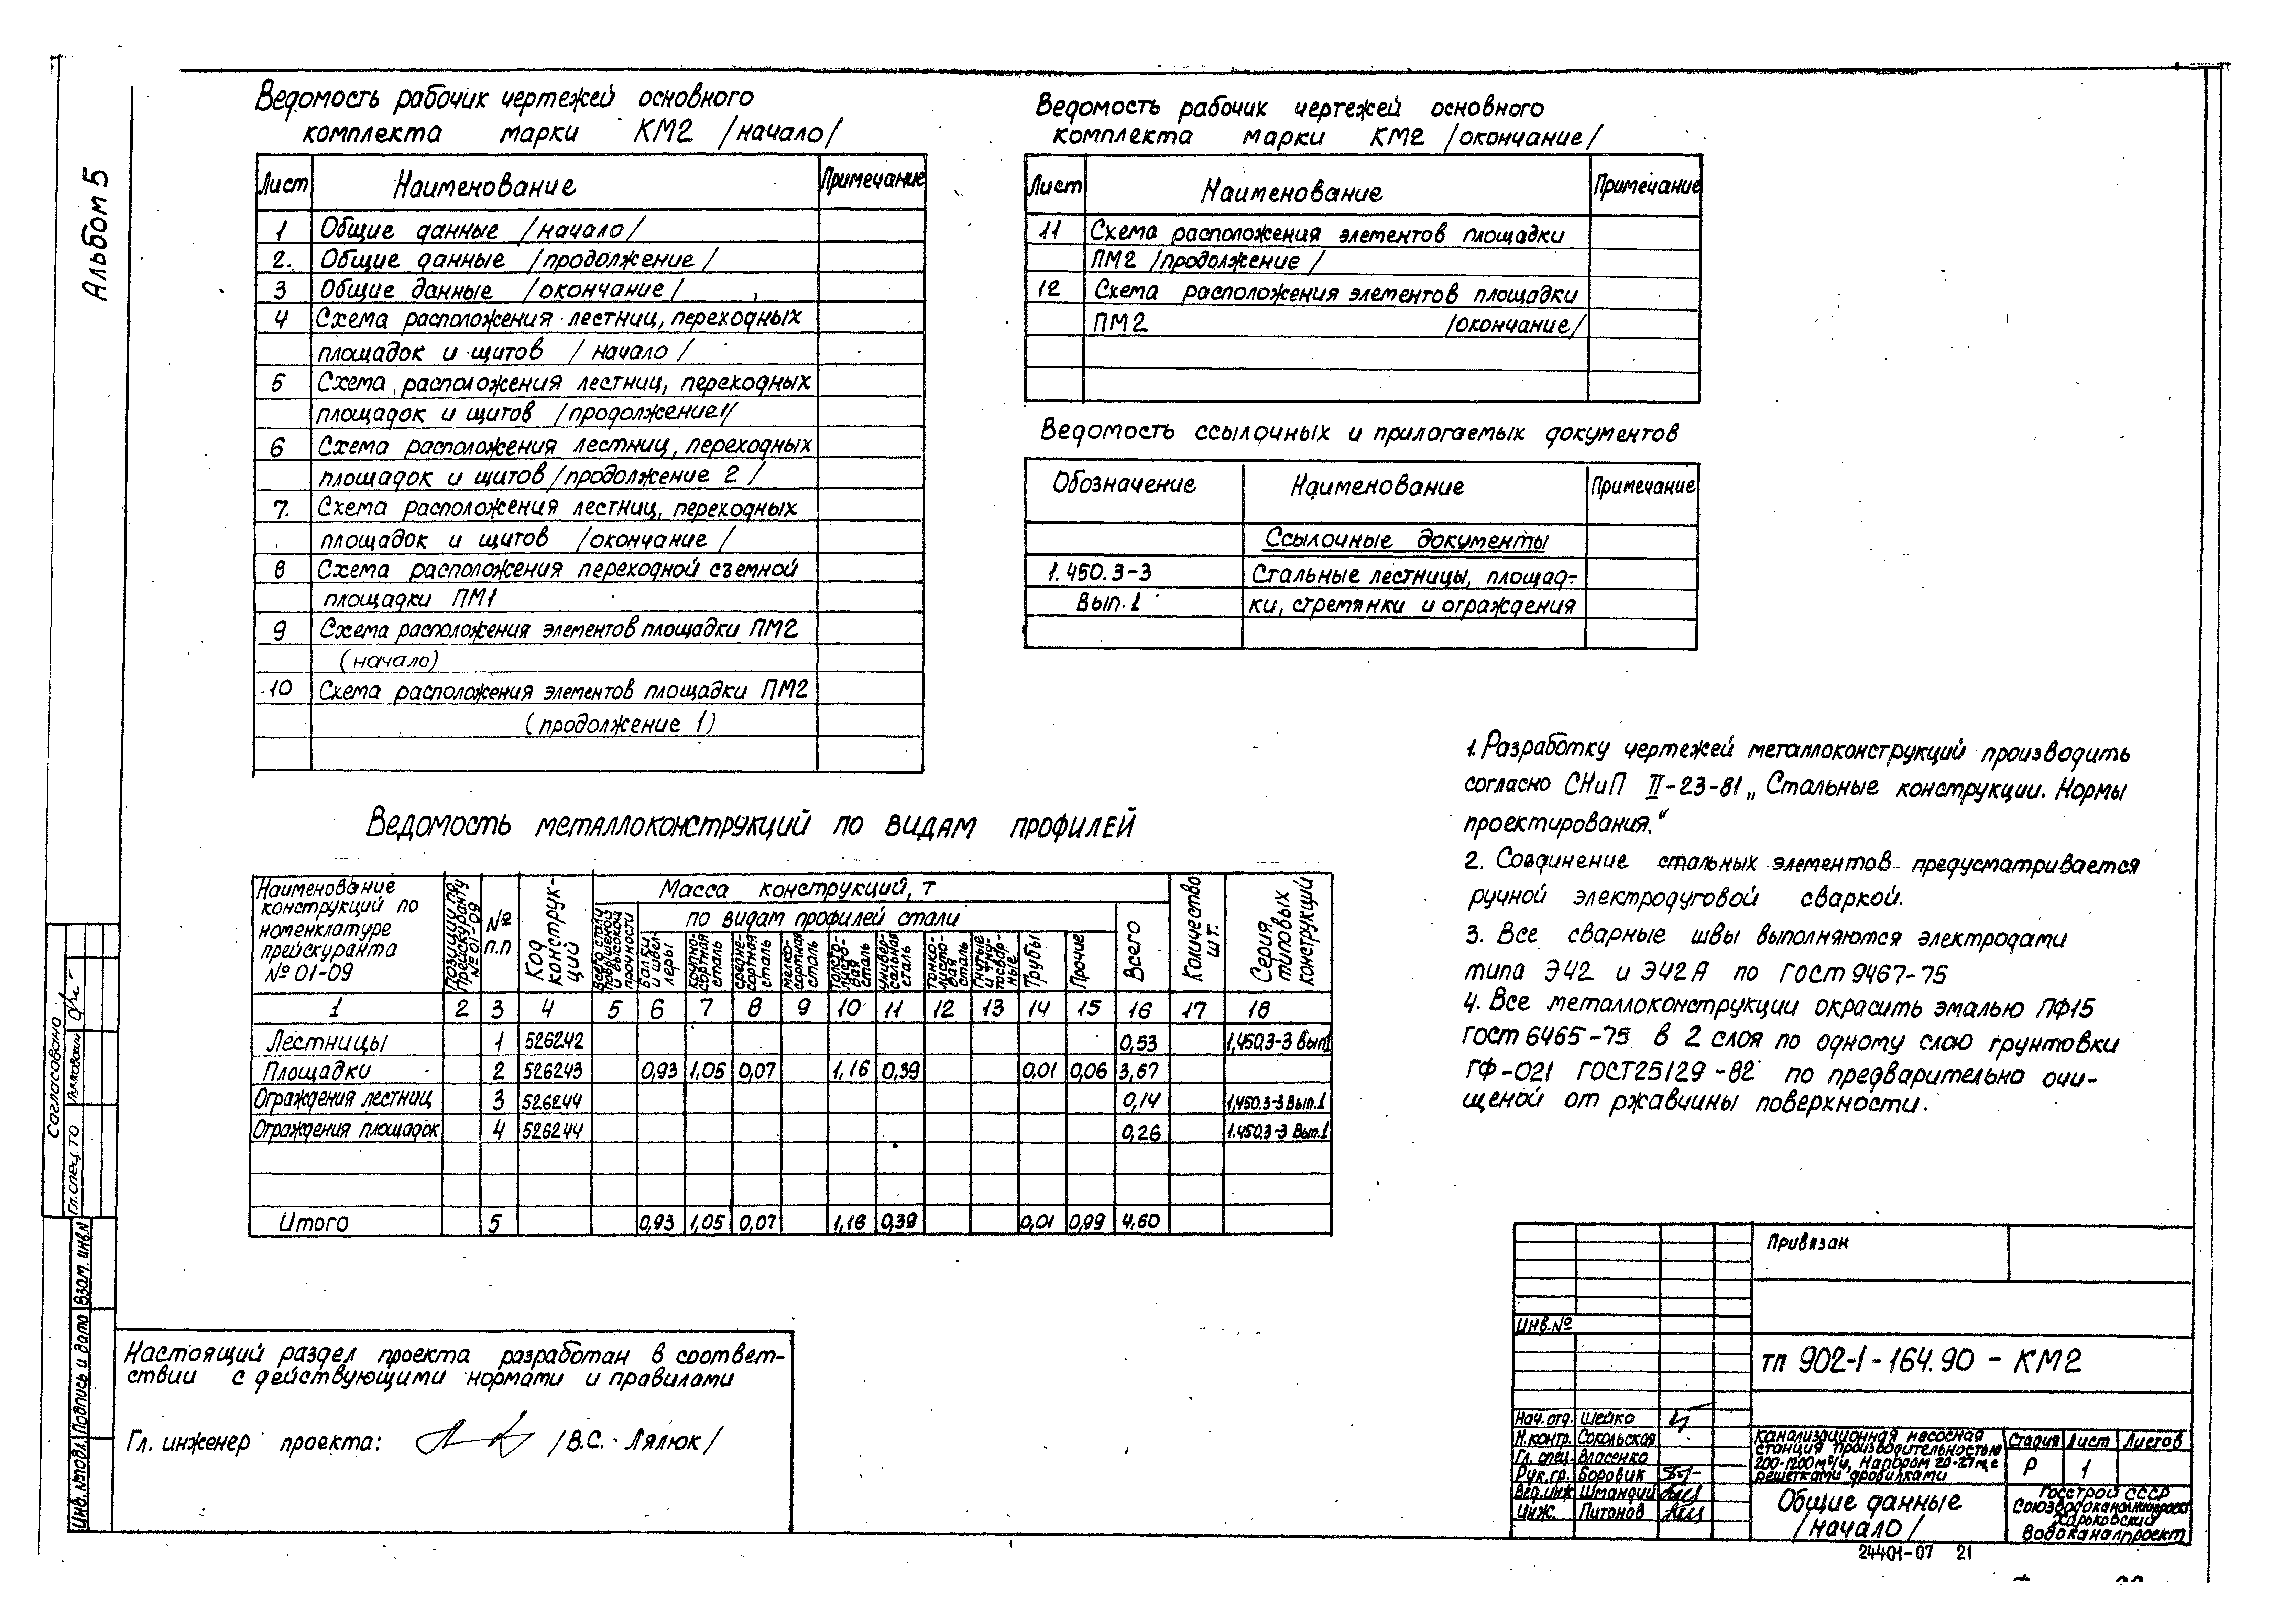 Альбом 5
Ведомость рабочих чертежей основного
комплекта марки КМ2 /начало/
Лист Наименование Примечание
1 Общие данные /начало/
2. Общие данные /продолжение/
3 Общие данные /окончание/
4 Схема расположения лестниц, переходных
площадок и щитов /начало/
5 Схема расположения лестниц, переходных
площадок и щитов /продолжение1/
6 Схема расположения лестниц, переходных
площадок и щитов /продолжение 2/
7. Схема расположения лестниц, переходных
площадок и щитов /окончание/
8 Схема расположения переходной съемной
площадки ПМ1
9 Схема расположения элементов площадки ПМ2
(начало)
10 Схема расположения элементов площадки ПМ2
(продолжение 1)
Ведомость рабочих чертежей основного
комплекта марки КМ2 /окончание/
Лист Наименование Примечание
11 Схема расположения элементов площадки
ПМ2 /продолжение/
12 Схема расположения элементов площадки
ПМ2 /окончание/
Ведомость ссылочных и прилагаемых документов
Обозначение Наименование Примечание
Ссылочные документы
1.450.3-3 Стальные лестницы, площад-
Вып.1 ки, стремянки и ограждения
Ведомость металлоконструкций по видам профилей
Наименование
конструкций по
номенклатуре
прейскуранта
№ 01-09
Позиции по
прейскуранту
№ 01-09
№
п.п
Код
конструк-
ций
Масса конструкций, т
Всего стали
повышенной
и высокой
прочности
по видам профилей стали
Балки
и швел-
леры
Крупно-
сортная
сталь
Средне-
сортная
сталь
Мелко-
сортная
сталь
Толсто-
листо-
вая
сталь
Универ-
сальная
сталь
Тонко-
листо-
вая
сталь
Гнутые
и гну-
тосвар-
ные
Трубы
Прочие
Всего
Количество
шт.
Серия
типовых
конструкций
1 2 3 4 5 6 7 8 9 10 11 12 13 14 15 16 17 18
Лестницы 1 526242 0,53 1,450.3-3 Вып1
Площадки 2 526243 0,93 1,05 0,07 1,16 0,39 0,01 0,06 3,67
Ограждения лестниц 3 526244 0,14 1,450.3-3 Вып.1
Ограждения площадок 4 526244 0,26 1.450.3-3 Вып.1
Итого 5 0,93 1,05 0,07 1,16 0,39 0,01 0,99 4,60
1. Разработку чертежей металлоконструкций производить
согласно СНиП II-23-81 „Стальные конструкции. Нормы
проектирования.“
2. Соединение стальных элементов предусматривается
ручной электродуговой сваркой.
3. Все сварные швы выполняются электродами
типа Э42 и Э42А по ГОСТ 9467-75
4. Все металлоконструкции окрасить эмалью ПФ15
ГОСТ 6465-75 в 2 слоя по одному слою грунтовки
ГФ-021 ГОСТ25129-82 по предварительно очи-
щеной от ржавчины поверхности.
Настоящий раздел проекта разработан в соответ-
ствии с действующими нормами и правилами
Гл. инженер проекта: /В.С. Лялюк/
Согласовано
Гл.спец.ТО
Взам. инв.N
Подпись и дата
Инв.№подл.
Привязан
Инв.№
ТП 902-1-164.90 - КМ2
Нач.отд. Шейко
Н.контр. Сокольская
Гл. спец. Власенко
Рук.гр. Боровик
Вед.инж Шмандий
Инж. Питонов
Канализационная насосная
станция производительностью
200-1200м³/ч, напором 20-27м, с
решетками дробилками
Стадия Лист Листов
Р 1
Общие данные
/начало/
Госстрой СССР
Союзводоканалниипроект
Харьковский
Водоканалпроект
24401-07 21